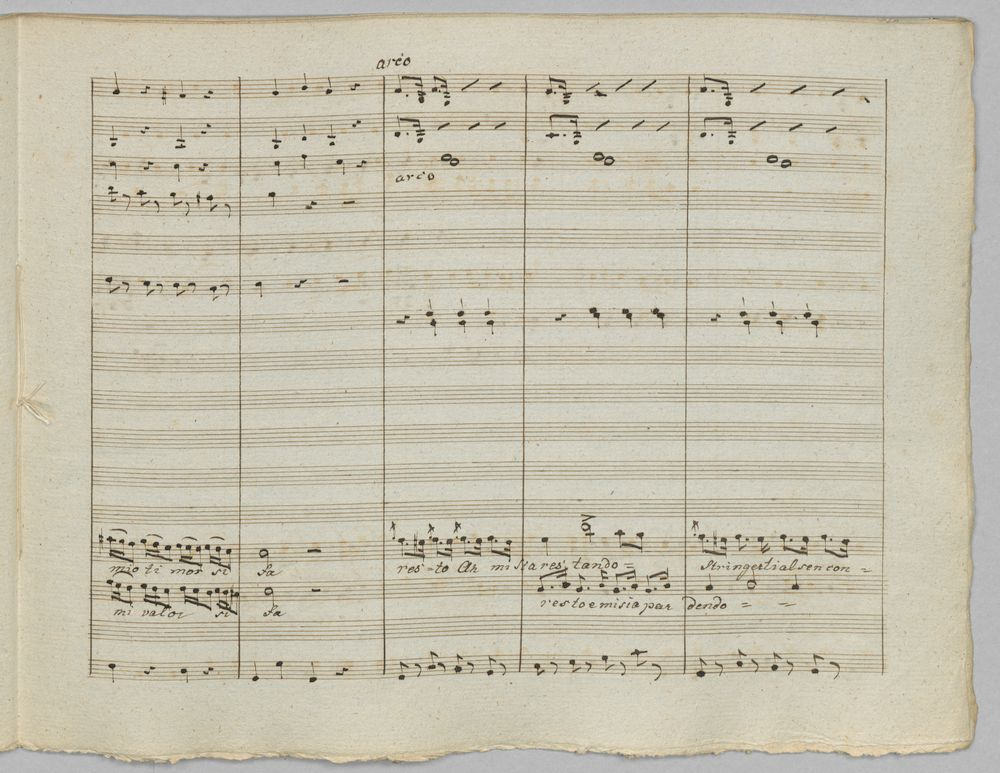 arco
arco
mio ti mor si fa res = to Ah mi sta res tando = Stringertial sen con =
mi valor si fa resto e mi sia par dendo = =